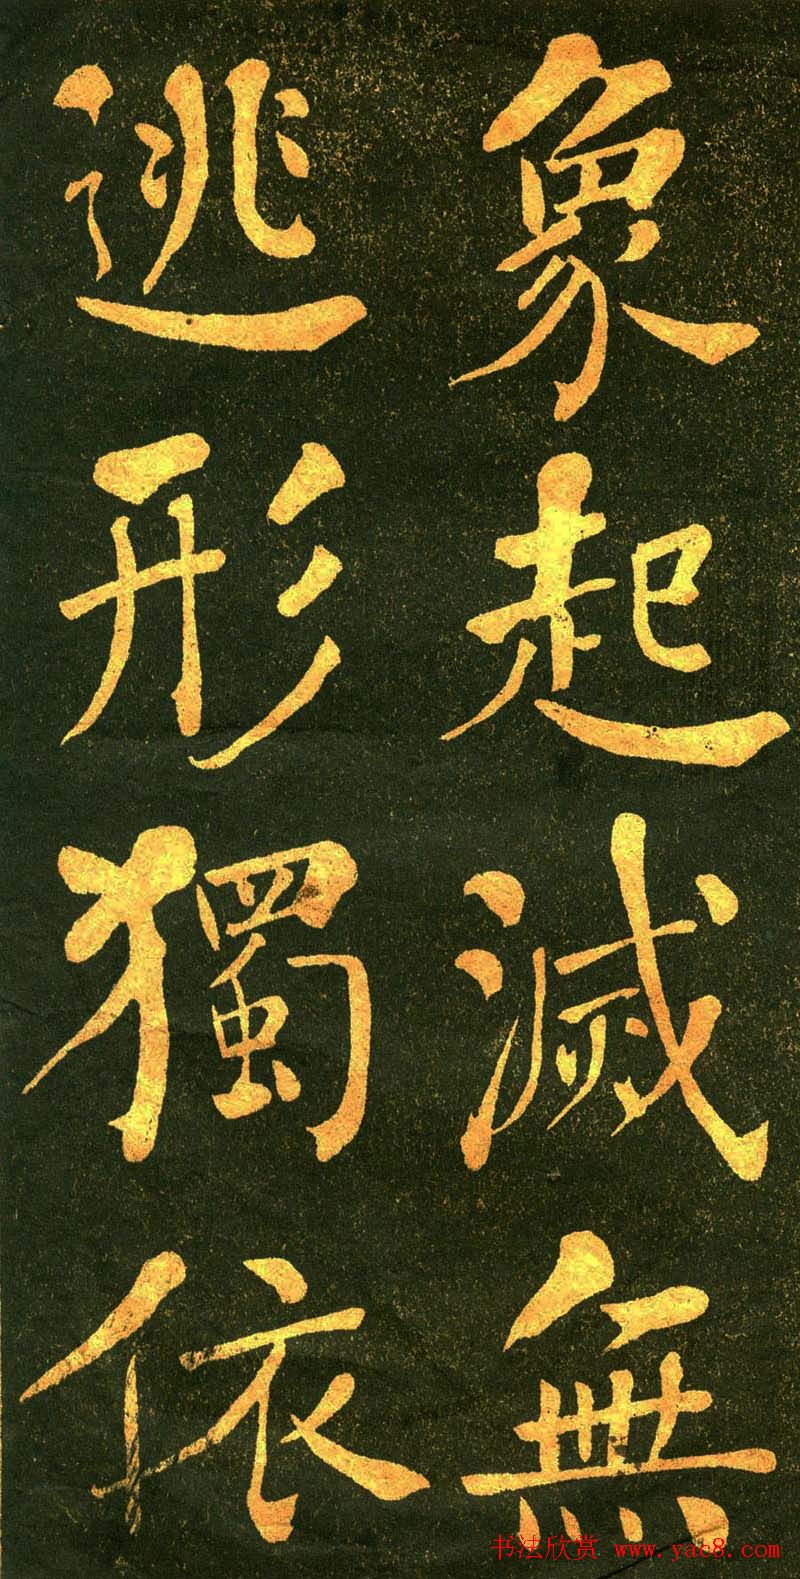 象起滅無
逃形獨依
书法欣赏 www.yac8.com